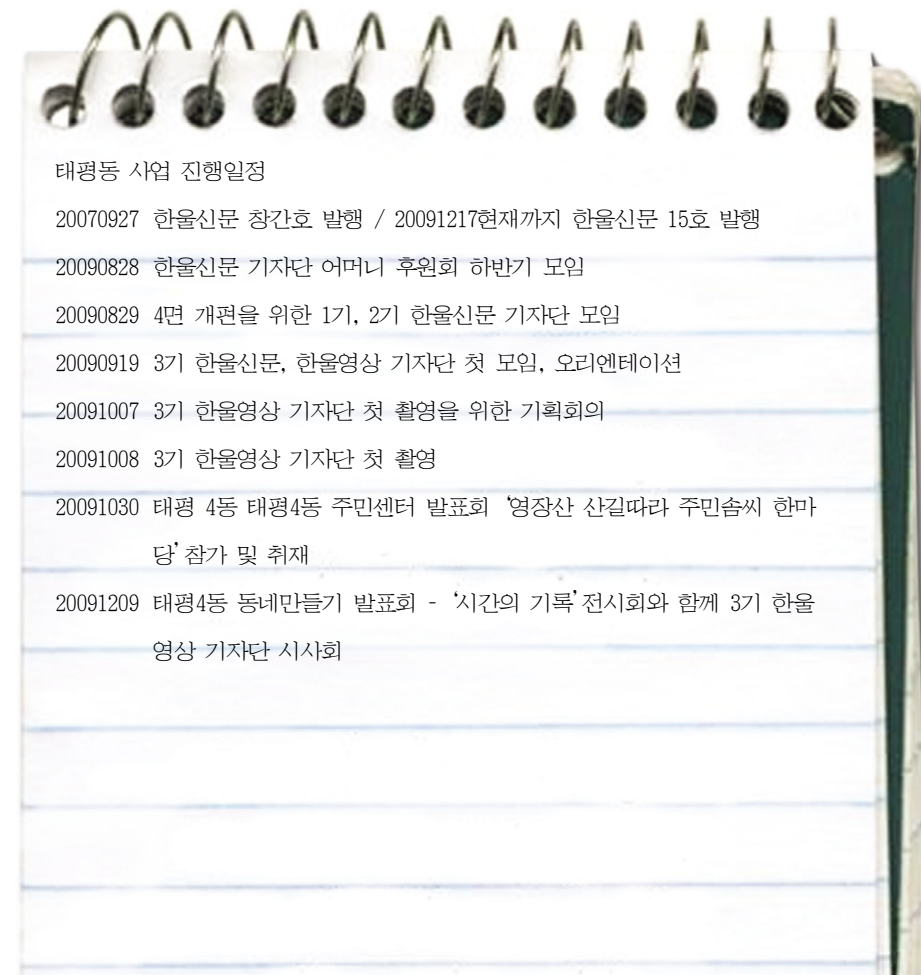 태평동 사업 진행일정
20070927 한울신문 창간호 발행 / 20091217현재까지 한울신문 15호 발행
20090828 한울신문 기자단 어머니 후원회 하반기 모임
20090829 4면 개편을 위한 1기, 2기 한울신문 기자단 모임
20090919 3기 한울신문, 한울영상 기자단 첫 모임, 오리엔테이션
20091007 3기 한울영상 기자단 첫 촬영을 위한 기획회의
20091008 3기 한울영상 기자단 첫 촬영
20091030 태평 4동 태평4동 주민센터 발표회 ‘영장산 산길따라 주민솜씨 한마
당’참가 및 취재
20091209 태평4동 동네만들기 발표회 - ‘시간의 기록’전시회와 함께 3기 한울
영상 기자단 시사회